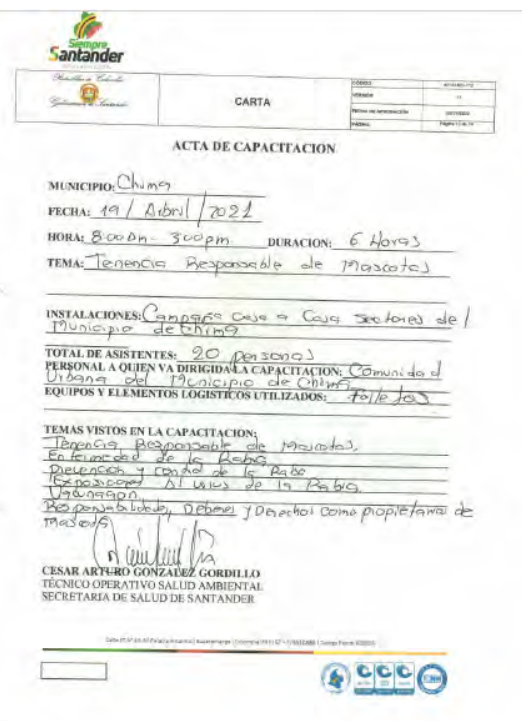 Siempre
Santander
República de Colombia
Gobernación de Santander
CARTA
CÓDIGO
VERSIÓN
FECHA DE APROBACIÓN
PÁGINA
ACTA DE CAPACITACION
MUNICIPIO: Chima
FECHA: 19 / Abril / 2021
HORA: 8:00 am - 3:00 pm DURACION: 6 Horas
TEMA: Tenencia Responsable de Mascotas
INSTALACIONES: Campaña Casa a Casa Sectores del
Municipio de Chima
TOTAL DE ASISTENTES: 20 personas
PERSONAL A QUIEN VA DIRIGIDA LA CAPACITACION: Comunidad
Urbana del Municipio de Chima
EQUIPOS Y ELEMENTOS LOGISTICOS UTILIZADOS: Folletos
TEMAS VISTOS EN LA CAPACITACION:
Tenencia Responsable de Mascotas,
Enfermedad de la Rabia
Prevencion y control de la Rabia
Al virus de la Rabia
Vacunacion
Responsabilidades, Deberes y Derechos como propietarios de
mascotas
CESAR ARTURO GONZALEZ GORDILLO
TÉCNICO OPERATIVO SALUD AMBIENTAL
SECRETARIA DE SALUD DE SANTANDER